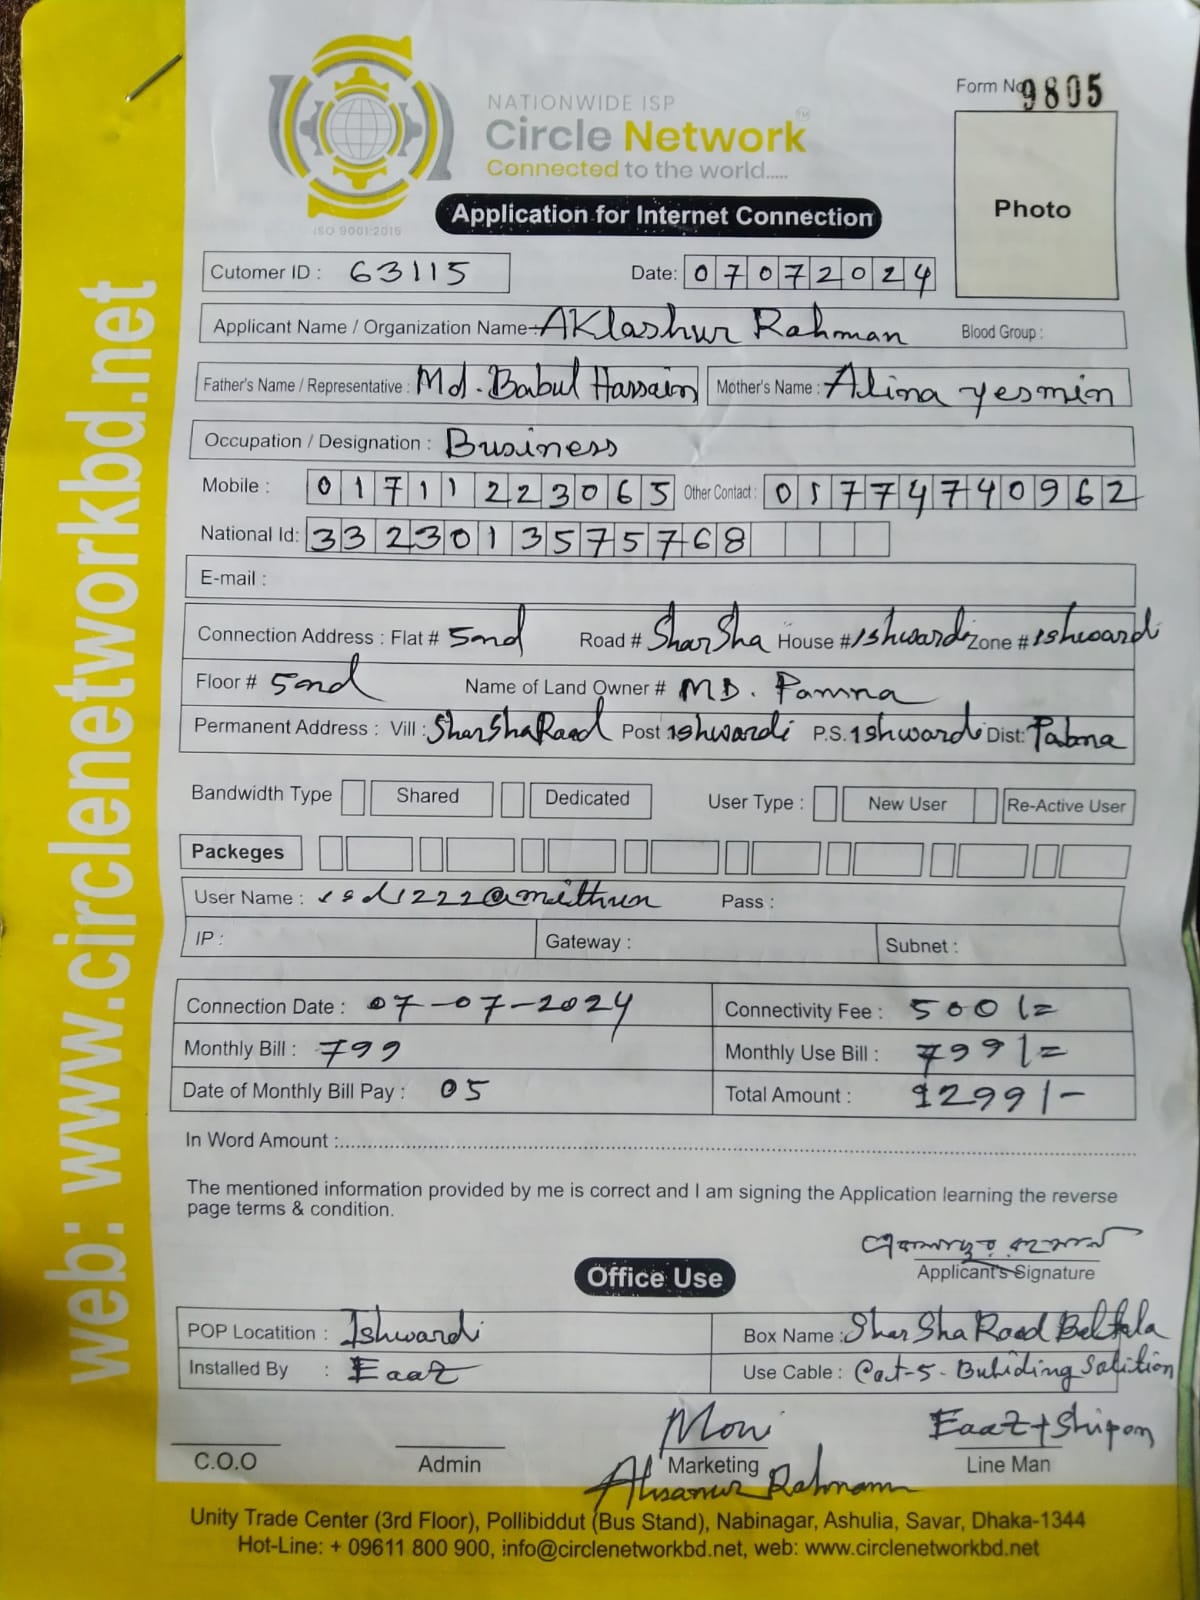 web: www.circlenetworkbd.net
NATIONWIDE ISP
Circle Network TM
Connected to the world.....
ISO 9001:2015
Form No 9805
Photo
Application for Internet Connection
Cutomer ID : 63115 Date: 07072024
Applicant Name / Organization Name :- AKlashur Rahman Blood Group :
Father's Name / Representative : Md. Babul Hassain Mother's Name : Alina yesmin
Occupation / Designation : Business
Mobile : 01711223065 Other Contact : 01774740962
National Id: 3323013575768
E-mail :
Connection Address : Flat # 5nd Road # SharSha House # Ishwardi Zone # Ishwardi
Floor # 5nd Name of Land Owner # MD. Panna
Permanent Address : Vill : SharSha Raod Post Ishwardi P.S. Ishwardi Dist: Pabna
Bandwidth Type Shared Dedicated User Type : New User Re-Active User
Packeges
User Name : isd1222@mithun Pass :
IP : Gateway : Subnet :
Connection Date : 07-07-2024 Connectivity Fee : 500/=
Monthly Bill : 799 Monthly Use Bill : 799/=
Date of Monthly Bill Pay : 05 Total Amount : 1299/-
In Word Amount :
The mentioned information provided by me is correct and I am signing the Application learning the reverse
page terms & condition.
Applicant's Signature
Office Use
POP Locatition : Ishwardi Box Name : SharSha Raod Beltala
Installed By : EaaZ Use Cable : Cat-5. Buhiding Salition
Moni EaaZ + Shipon
C.O.O Admin Marketing Line Man
Ahsanur Rahman
Unity Trade Center (3rd Floor), Pollibiddut (Bus Stand), Nabinagar, Ashulia, Savar, Dhaka-1344
Hot-Line: + 09611 800 900, info@circlenetworkbd.net, web: www.circlenetworkbd.net